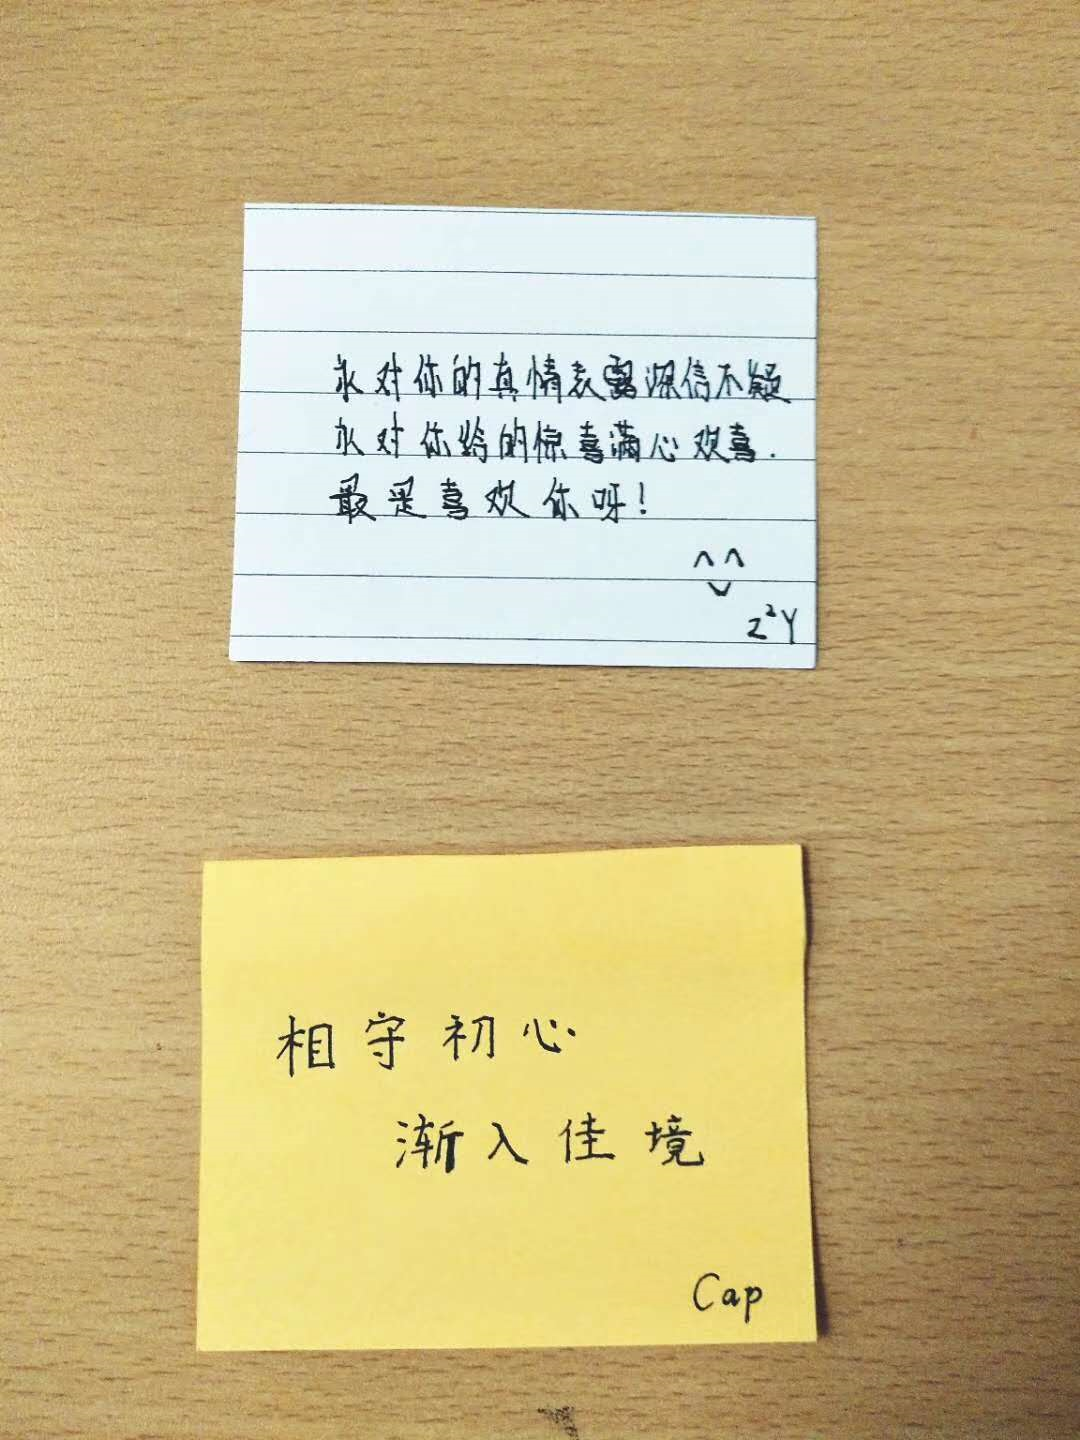 永对你的真情表露深信不疑
永对你给的惊喜满心欢喜.
最是喜欢你呀!
^^
Z²Y
相守初心
渐入佳境
Cap